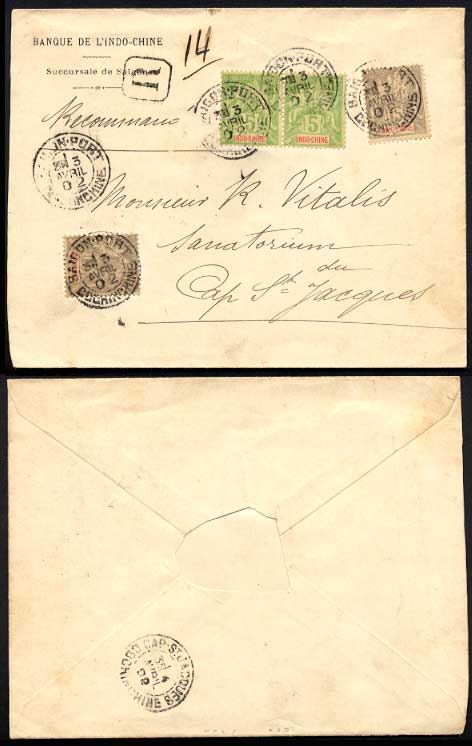 BANQUE DE L'INDO-CHINE
Succursale de Saigon
R
14
Recommandé
SAIGON-PORT
3
AVRIL
02
COCHINCHINE
5
INDO-CHINE
5
INDO-CHINE
Monsieur K. Vitalis
Sanatorium
du
Cap St Jacques
SAIGON-PORT
3
AVRIL
02
COCHINCHINE
CAP-ST-JACQUES
4
AVRIL
02
COCHINCHINE